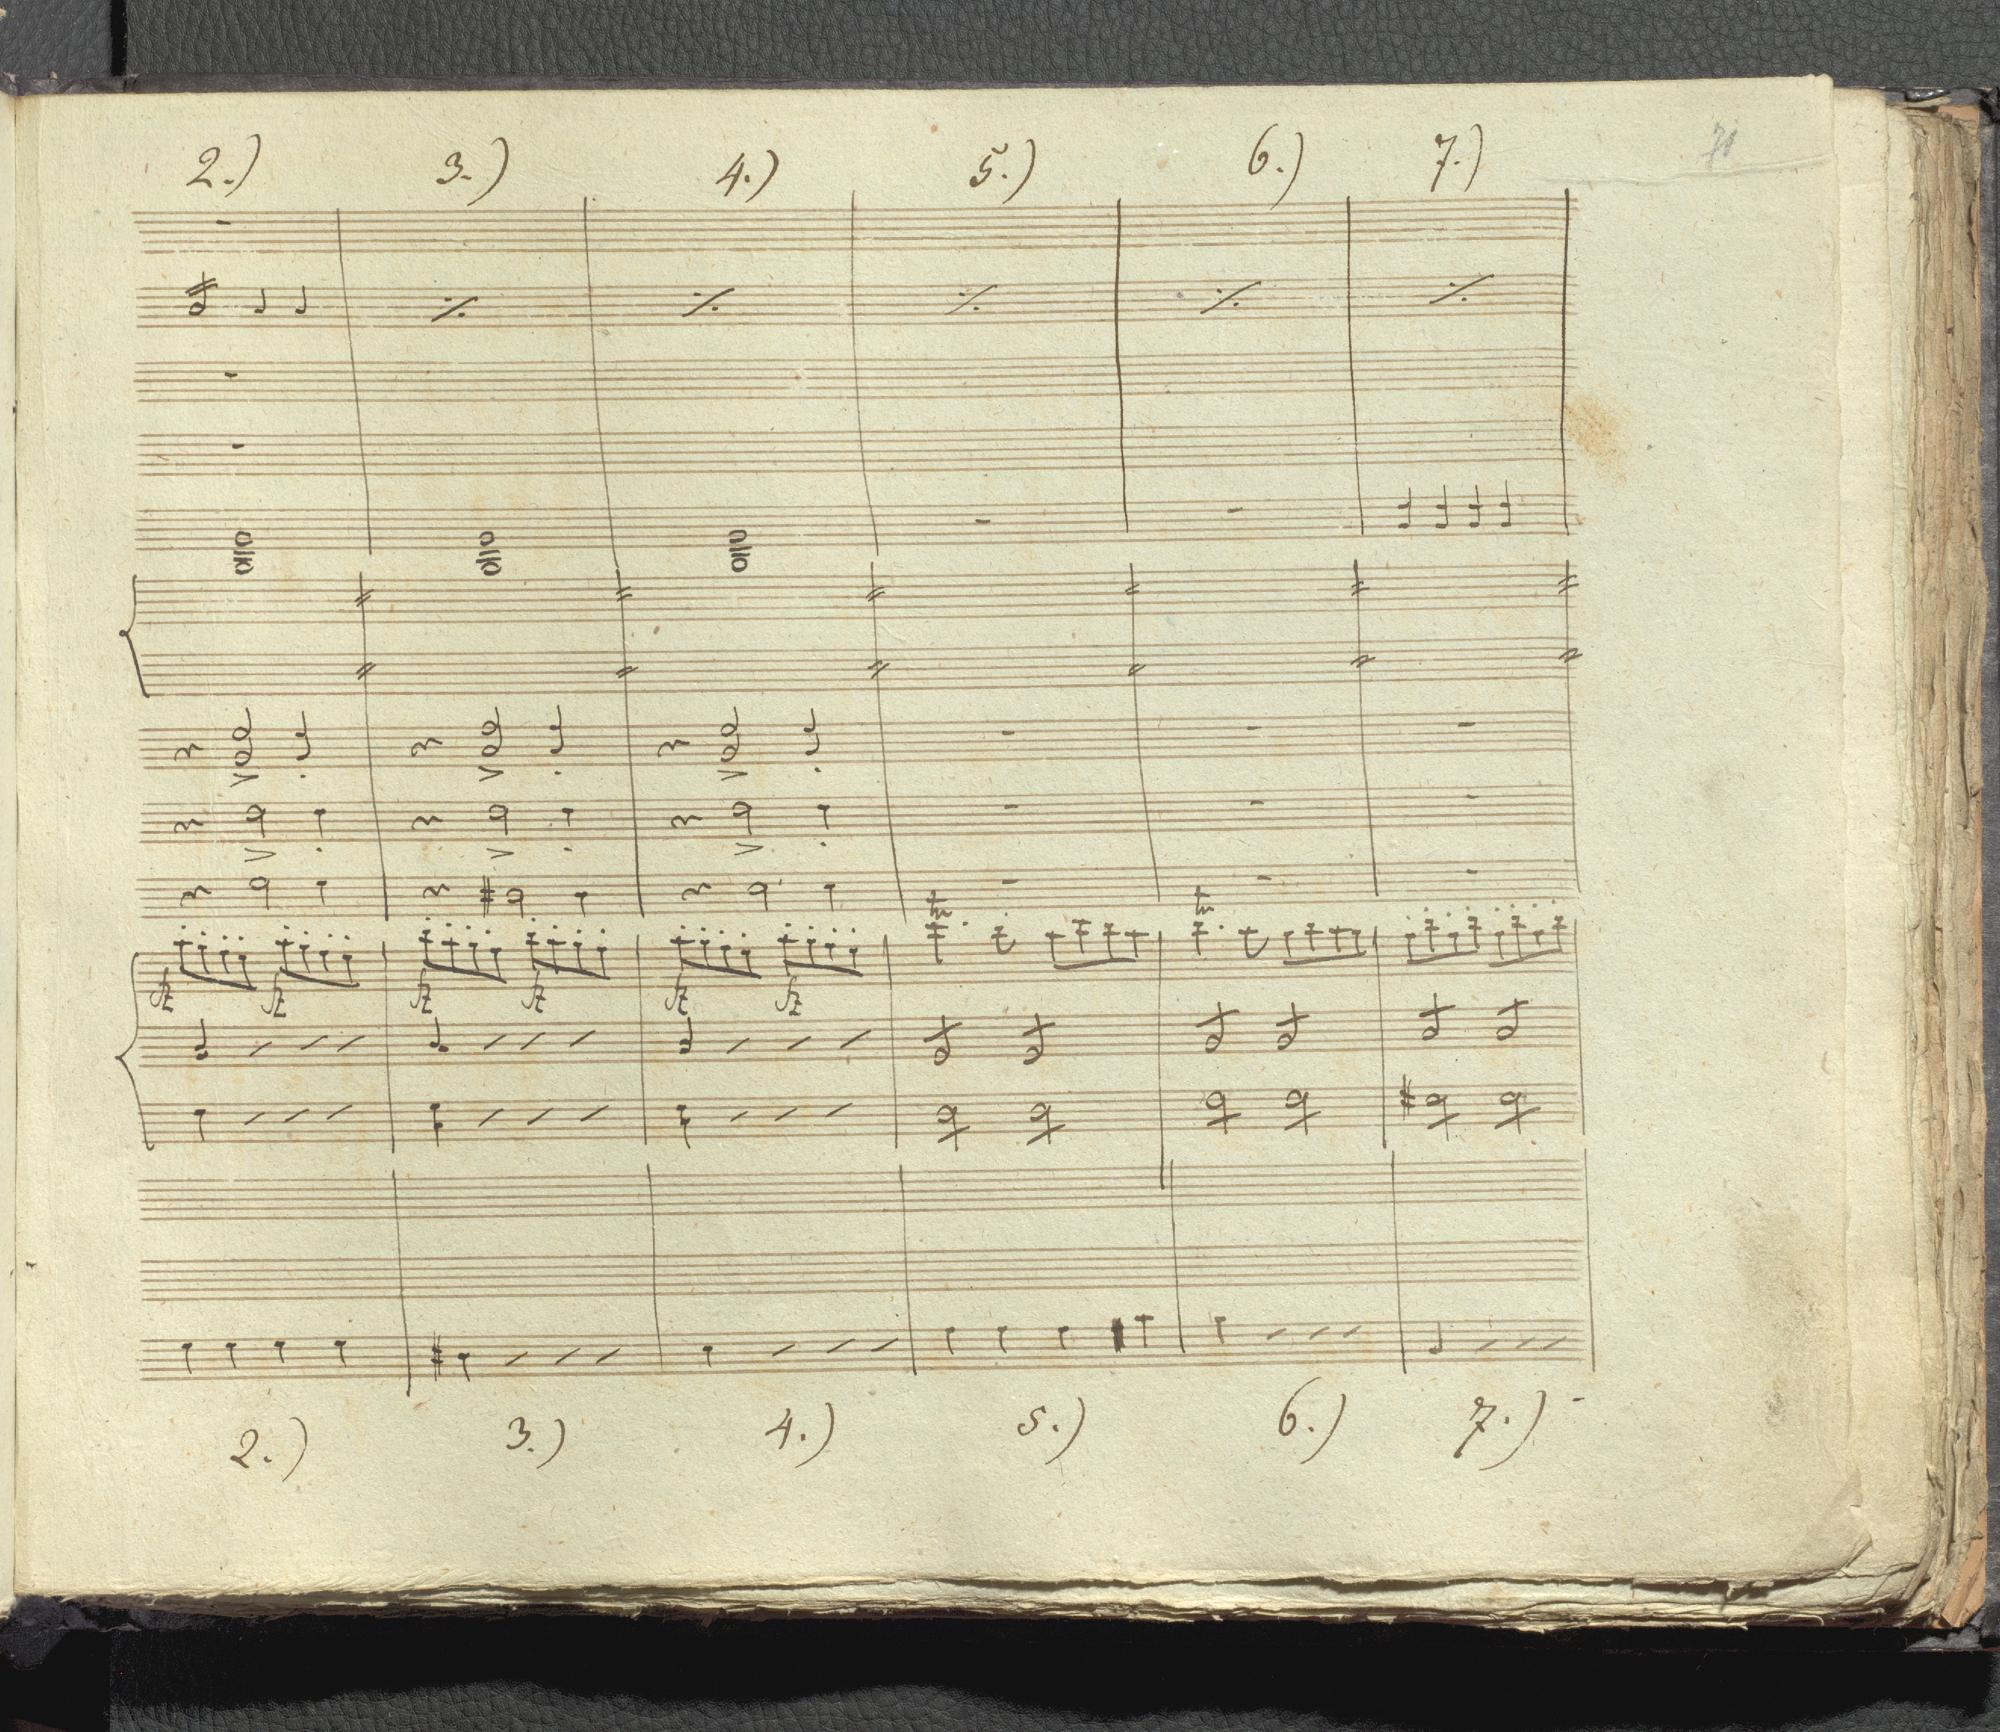 2.) 3.) 4.) 5.) 6.) 7.)
tr tr
fz fz fz fz fz fz
2.) 3.) 4.) 5.) 6.) 7.)